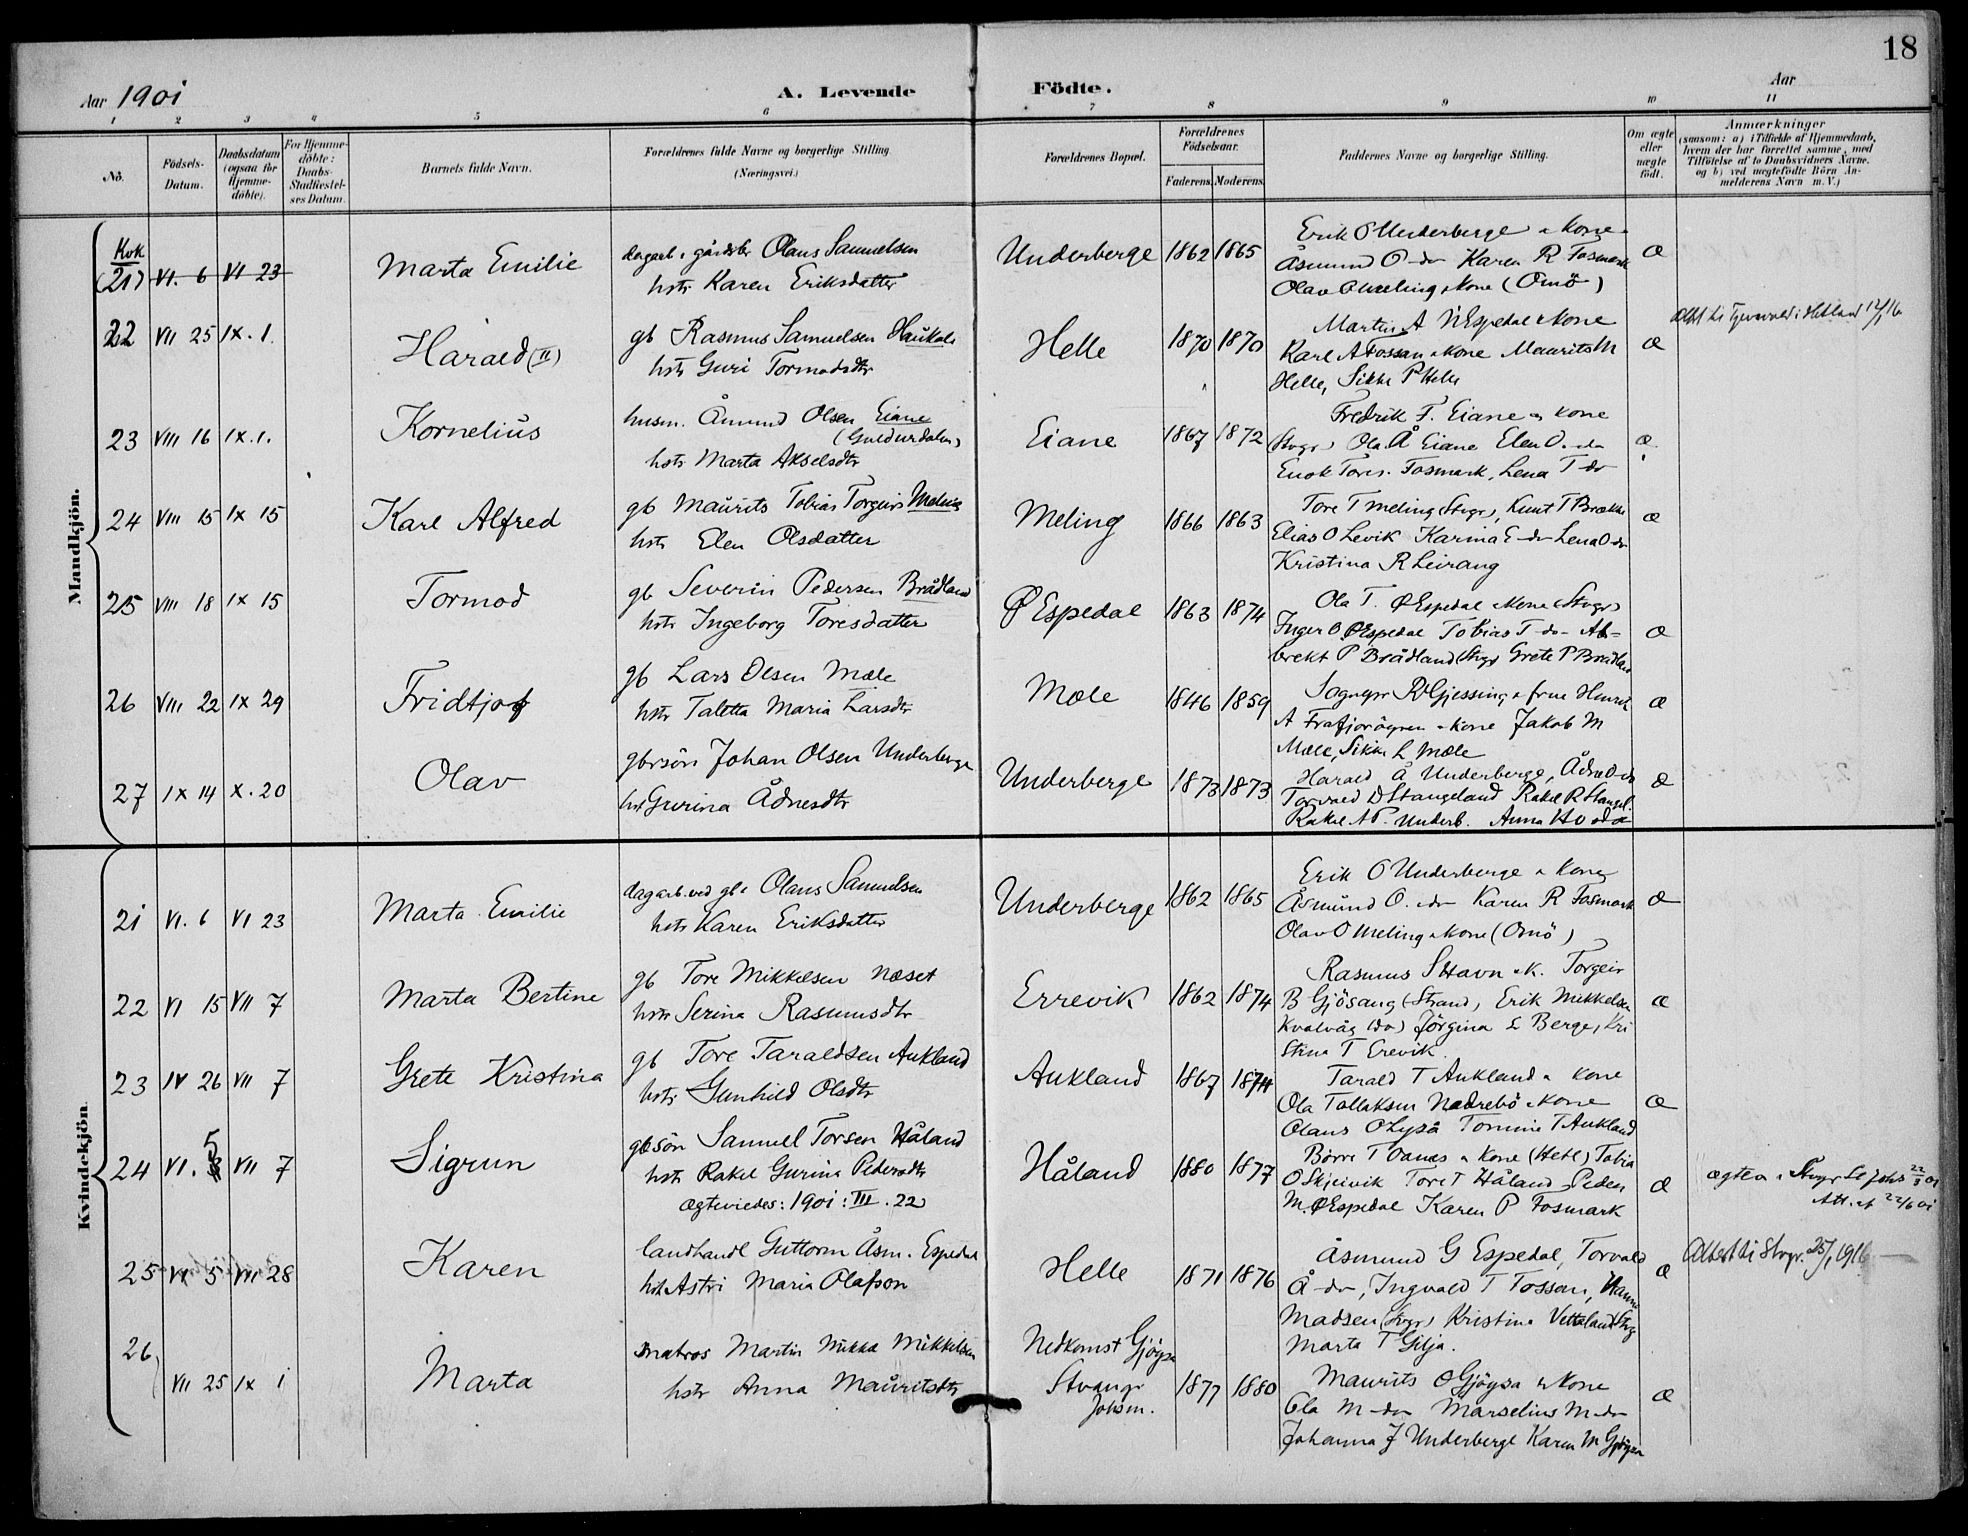 18
Aar 1901 A. Levende Födte. Aar
1 2 3 4 5 6 7 8 9 10 11
Nô. Födsels-Datum. Daabsdatum (ogsaa for Hjemme-döbte). For Hjemme-döbte: Daabs-Stadfæstel-ses Datum. Barnets fulde Navn. Forældrenes fulde Navne og borgerlige Stilling. (Næringsvei.) Forældrenes Bopæl. Forældrenes Födselsaar. Faderens. Moderens. Faddernes Navne og borgerlige Stilling. Om ægte eller uægte födt. Anmærkninger (saasom: a) i Tilfælde af Hjemmedaab, hvem der har forrettet samme, med Tilföielse af to Daabsvidners Navne. og b) ved uægtefödte Börn An-melderens Navn m. V.)
Mandkjön.
Kvk
(21) VI. 6 VI 23 Marta Emilie Olaus Samuelsen Underberge 1862 1865 Erik O Underberge & kone
hstr Karen Eriksdatter Åsmund O do Karen R Fosmark Æ
Olav O Meling & kone (Omö)
22 VII 25 IX. 1. Harald (II) gb Rasmus Samuelsen Haukali Helle 1870 1870 Martin A Espedal & kone Æ
hstr Guri Tormodsdtr Karl A Fossan & kone Maurits M
Helle, Sikke P Helle
23 VIII 16 IX. 1. Kornelius husm. Åmund Olsen Eiane Eiane 1867 1872 Fredrik F. Eiane & kone Æ
hstr Marta Akselsdtr (Stvgr) Ola Å Eiane Elen O. do
Enok Tores. Fosmark, Lena T do
24 VIII 15 IX 15 Karl Alfred gb Maurits Tobias Torgeirs Meling 1866 1863 Tore T Meling (Stvgr), Knut T Brække Æ
hstr Elen Olsdatter Elias O Levik Karina E do Lena O do
Kristina R Leirang
25 VIII 18 IX 15 Tormod gb Severin Pedersen Brådland Ø Espedal 1863 1874 Ola T. Ø Espedal & kone (Stvgr)
hstr Ingeborg Toresdatter Inger O. Ø Espedal Tobias T do Al- Æ
brekt P Brådland (Stvgr) Grete P Brådland
26 VIII 22 IX 29 Fridtjof gb Lars Olsen Mæle Mæle 1846 1859 Sognepr R Gjessing & frue Henrik Æ
hstr Taletta Maria Larsdtr A Frafjord & kone Jakob M
Mæle, Sikke L Mæle
27 IX 14 X. 20 Olav gbrsön Johan Olsen Underberge Underberge 1873 1873 Harald Å Underberge, Ådne O do Æ
hstr Gurina Ådnesdtr Torvald D Stangeland Rakel R Stangel.
Rakel A P. Underb. Anna
Kvindekjön.
21 VI. 6 VI 23 Marta Emilie dagarb. ved gb. Olaus Samuelsen Underberge 1862 1865 Erik O Underberge & kone
hstr Karen Eriksdatter Åsmund O. do Karen R Fosmark Æ
Olav O Meling & kone (Omö)
22 VI 15 VII 7 Marta Bertine gb Tore Mikkelsen Næset Errevik 1862 1874 Rasmus S Havn & K. Torgeir
hstr Serina Rasmusdtr B Gjösang (Strand), Erik Mikkelsen Æ
Kvalvåg (do) Jörgina E Berge, Kri
stina T Erevik.
23 IV 26 VII 7 Grete Kristina gb Tore Taraldsen Aukland Aukland 1867 1874 Tarald T Aukland & kone
hstr Gunhild Olsdtr Ola Tallaksen Nedrebö & kone Æ
Olaus O Lyså Tomine T Aukland
24 VI. 5 VII 7 Sigrun gbsön Samuel Torsen Håland Håland 1880 1877 Börre T Oanæs & kone (Hetl) Tobia
hstr Rakel Gurina Pedersdtr O Skjeivik Tore T Håland Peder Æ
ægteviedes: 1901: III. 22 M. Ø Espedal Karen P Fosmark
25 VI 5 VII 28 Karen landhandl Guttorm Åsm. Espedal Helle 1871 1876 Åsmund G Espedal, Torvald Æ
hstr Astri Maria Olafson Å do, Ingvald T Fossan, Hanna
Madsen (Stvgr) Kristine
Marta T Gilja.
26 VII 25 IX 1 Marta matros Martin Mikkelsen Nedkomst Gjöysa 1877 1880 Maurits O Gjöysa & kone Æ
hstr Anna Mauritsdtr Ola M do Marselius M do
Johanna J Underberge Karen M Gjöysa